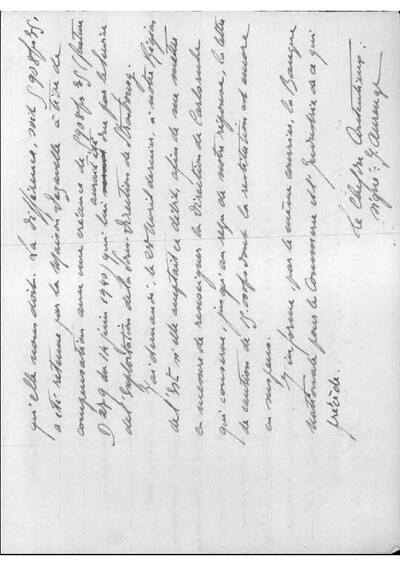 qu'elle nous doit. La différence, soit 5908f,35,
a été retenue par la Maison Degaille à titre de
compensation avec une créance de 5908f,35 (facture
D 279 du 14 juin 1940) qui lui aurait été due par le Service
de l'Exploitation de la Sous-direction de Strasbourg.
J'ai demandé, le 20 Avril dernier, à notre Région
de l'Est si elle acceptait ce débit, afin de me mettre
en mesure de renseigner la direction de Carlsruhe
qui conserve, jusqu'au reçu de notre réponse, la lettre
de caution de 15.000f dont la restitution est encore
en suspens.
J'informe par le même courrier, la Banque
Nationale pour le Commerce et l'Industrie de ce qui
précède.
Le Chef du Contentieux:
signé: G Aurenge